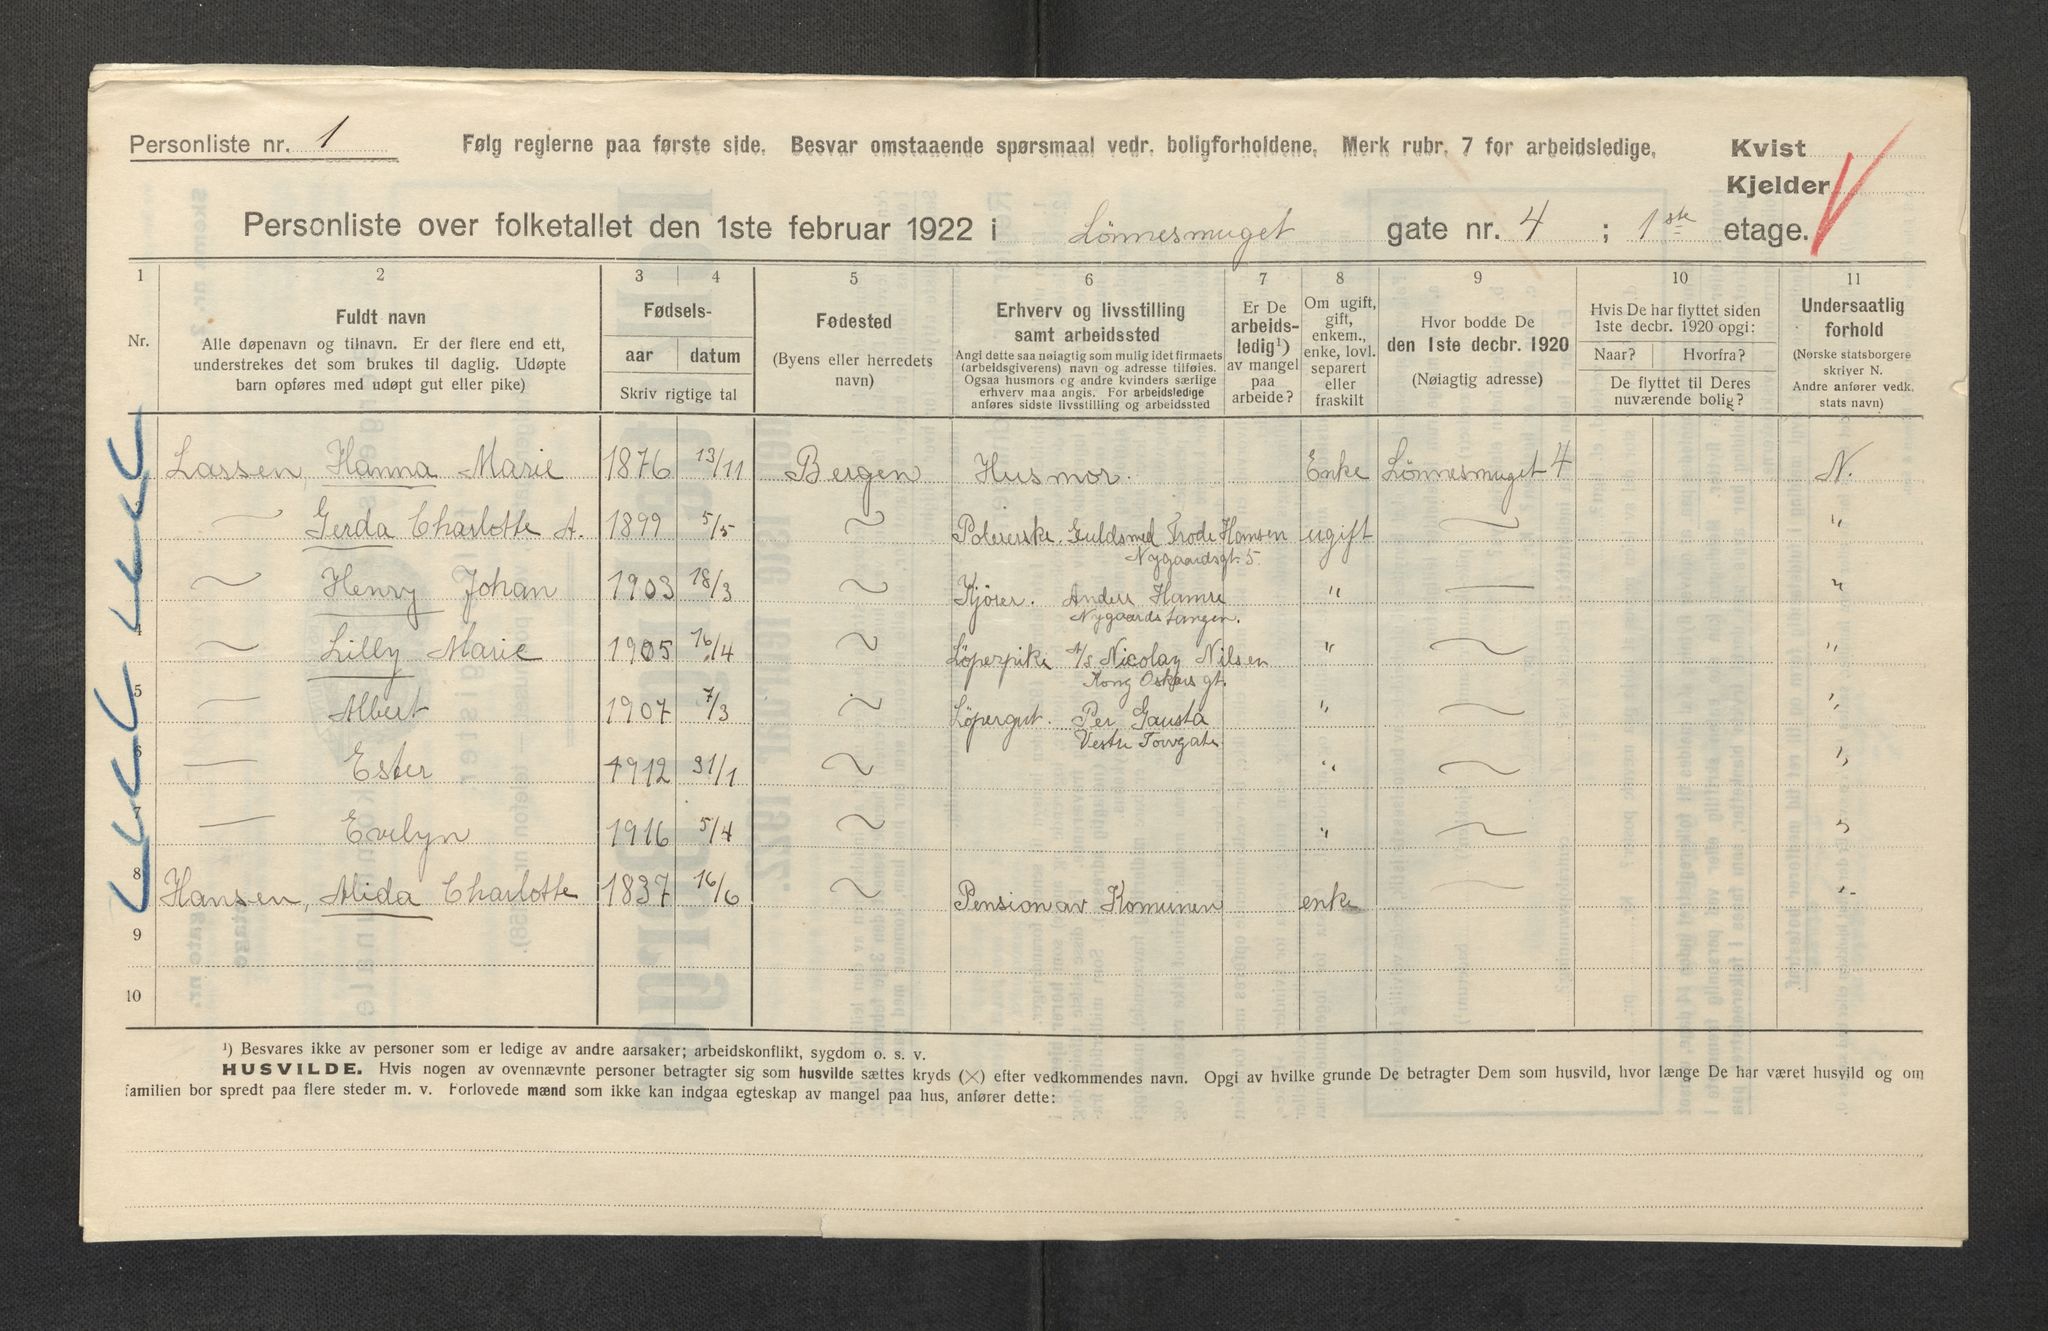 Personliste nr. 1 Følg reglerne paa første side. Besvar omstaaende spørsmaal vedr. boligforholdene. Merk rubr. 7 for arbeidsledige. Kvist
Kjelder
Personliste over folketallet den 1ste februar 1922 i Lönnesmuget gate nr. 4 ; 1ste etage.
1 2 3 4 5 6 7 8 9 10 11
Nr.
Fuldt navn
Alle døpenavn og tilnavn. Er der flere end ett,
understrekes det som brukes til daglig. Udøpte
barn opføres med udøpt gut eller pike)
Fødsels-
aar datum
Skriv rigtige tal
Fødested
(Byens eller herredets
navn)
Erhverv og livsstilling
samt arbeidssted
Angi dette saa nøiagtig som mulig idet firmaets
(arbeidsgiverens) navn og adresse tilføies.
Ogsaa husmors og andre kvinders særlige
erhverv maa angis. For arbeidsledige
anføres sidste livsstilling og arbeidssted
Er De
arbeids-
ledig¹)
av mangel
paa
arbeide?
Om ugift,
gift,
enkem.,
enke, lovl.
separert
eller
fraskilt
Hvor bodde De
den 1ste decbr. 1920
(Nøiagtig adresse)
Hvis De har flyttet siden
1ste decbr. 1920 opgi:
Naar? Hvorfra?
De flyttet til Deres
nuværende bolig?
Undersaatlig
forhold
(Norske statsborgere
skriver N.
Andre anfører vedk.
stats navn)
Lassen, Hanna Marie 1876 13/11 Bergen Husmor. Enke Lönnesmuget 4 N.
2 — Gerda Charlotte A. 1899 5/5 ~ Polererske. Guldsmed Frode Hansen ugift ~ "
Nygaardsgt. 5.
3 ~ Henry Johan 1903 18/3 ~ Kjörer. Anders Hamre " — "
Nygaardstangen.
4 ~ Lilly Marie 1905 16/4 ~ Löperpike A/S Nicolay Nilsen " ~ "
Kong Oskars gt.
5 — Albert 1907 7/3 ~ Löpergut. Per Gausta " ~ "
Vestre Torvgate
6 — Ester 1912 31/1 ~ " ~ "
7 — Evelyn 1916 5/4 ~ " ~ "
8 Hansen, Alida Charlotte 1837 16/6 ~ Pension av Komunen enke — "
9
10
¹) Besvares ikke av personer som er ledige av andre aarsaker; arbeidskonflikt, sygdom o. s. v.
HUSVILDE. Hvis nogen av ovennævnte personer betragter sig som husvilde sættes kryds (×) efter vedkommendes navn. Opgi av hvilke grunde De betragter Dem som husvild, hvor længe De har været husvild og om
familien bor spredt paa flere steder m. v. Forlovede mænd som ikke kan indgaa egteskap av mangel paa hus, anfører dette: